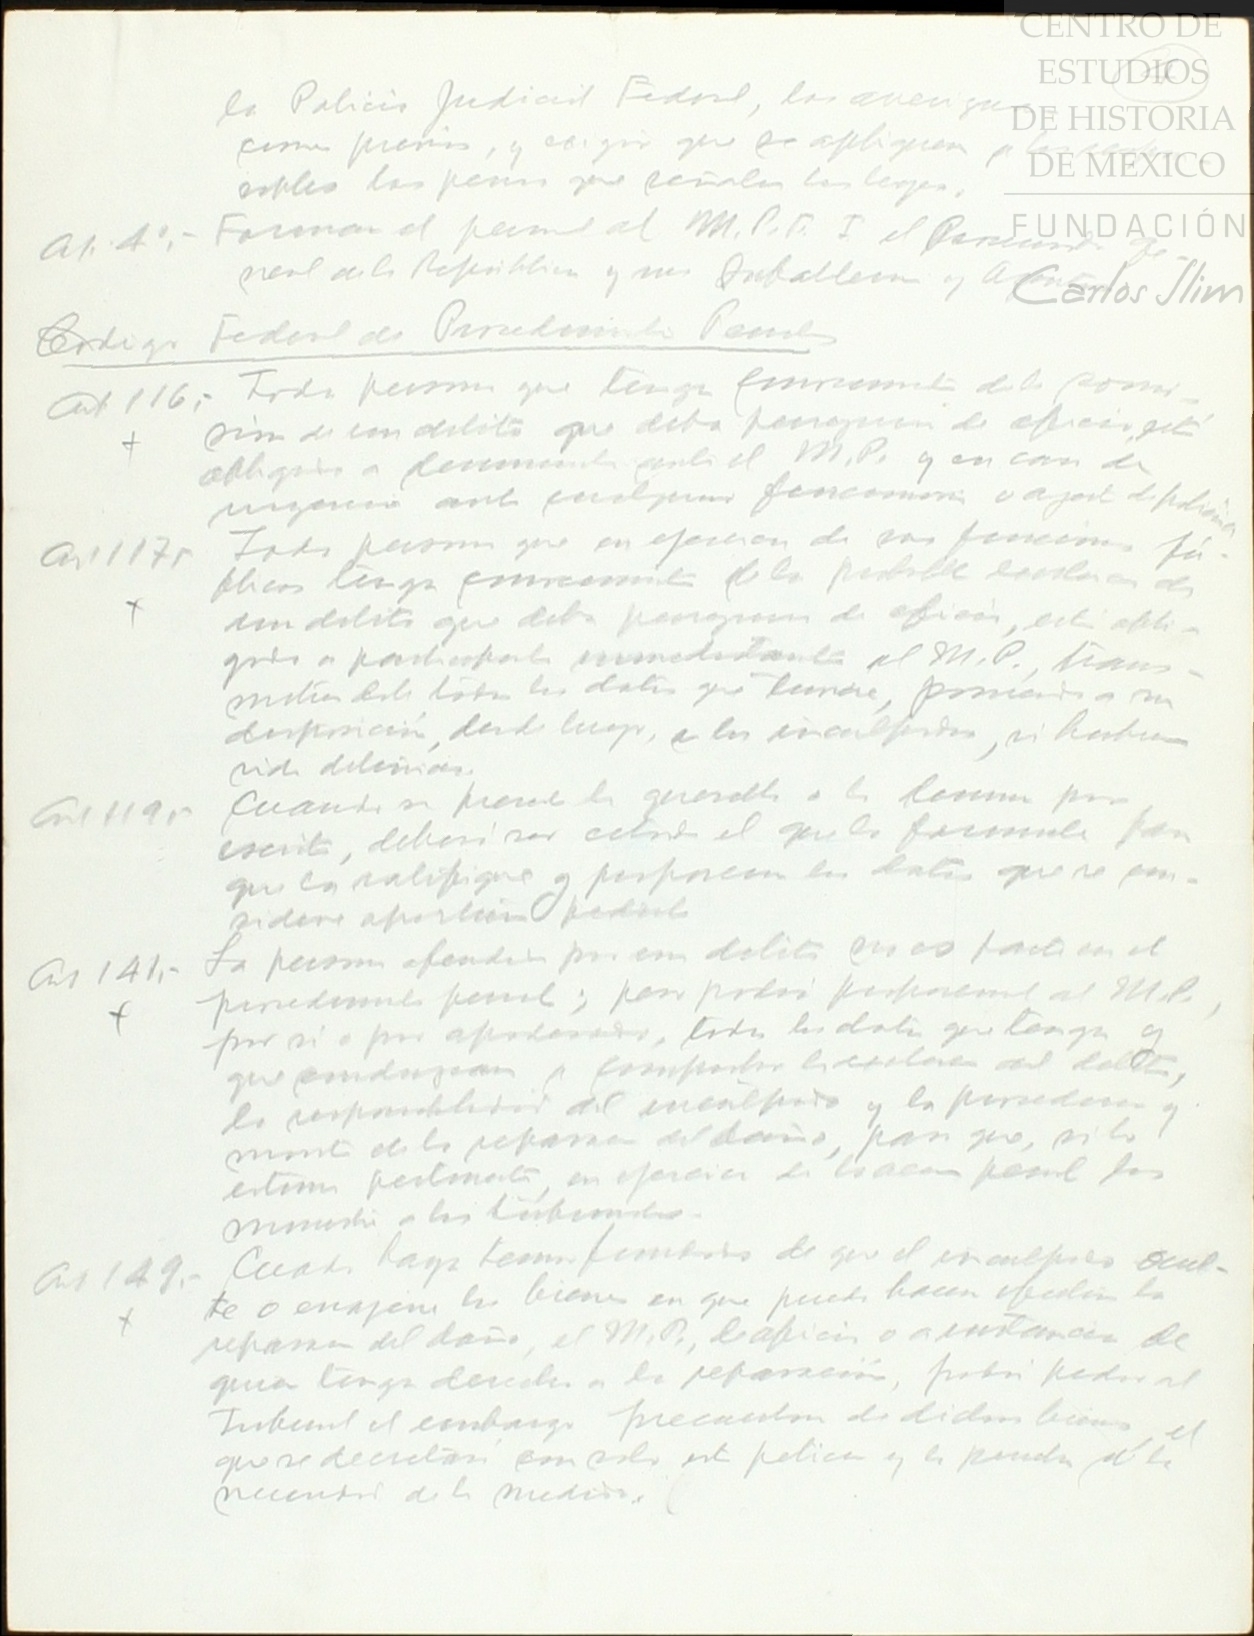 CENTRO DE
ESTUDIOS
DE HISTORIA
DE MÉXICO
FUNDACIÓN
Carlos Slim
la Policía Judicial Federal, las averigua-
ciones previas, y exigir que se apliquen a los
las penas que señalan las leyes.
Art. 4o.- Forman el personal del M.P.F. I el Procurador Ge-
neral de la República y sus Subalternos y
Codigo Federal de Procedimientos Penales
Art 116.- Toda persona que tenga conocimiento de la comi-
+ sión de un delito que deba perseguirse de oficio, está
obligada a denunciarlo ante el M.P. y en caso de
urgencia ante cualquier funcionario o agente de policía
Art 117.- Toda persona que en ejercicio de sus funciones pú-
+ blicas tenga conocimiento de la probable existencia de
un delito que deba perseguirse de oficio, está obli-
gada a participarlo inmediatamente al M.P., trans-
mitiendole todos los datos que tuviere, poniendo a su
disposición, desde luego, a los inculpados, si hubieren
sido detenidos.
Art 119.- Cuando se presente la querella o la denuncia por
escrito, deberá ser citado el que la formule para
que la ratifique y proporcione los datos que se con-
sidere oportuno pedirle
Art 141.- La persona ofendida por un delito no es parte en el
+ procedimiento penal; pero podrá proporcionar al M.P.,
por si o por apoderado, todos los datos que tenga y
que conduzcan a comprobar la existencia del delito,
la responsabilidad del inculpado y la procedencia y
monto de la reparación del daño, para que, si lo
estima pertinente, en ejercicio de la acción penal los
ministre a los tribunales.
Art 149.- Cuando haya temor fundado de que el inculpado ocul-
+ te o enajene los bienes en que pueda hacerse efectiva la
reparación del daño, el M.P., de oficio o a instancia de
quien tenga derecho a la reparación, podrá pedir al
Tribunal el embargo precautorio de dichos bienes, el
que se decretará con solo esta petición y la prueba de la
necesidad de la medida.